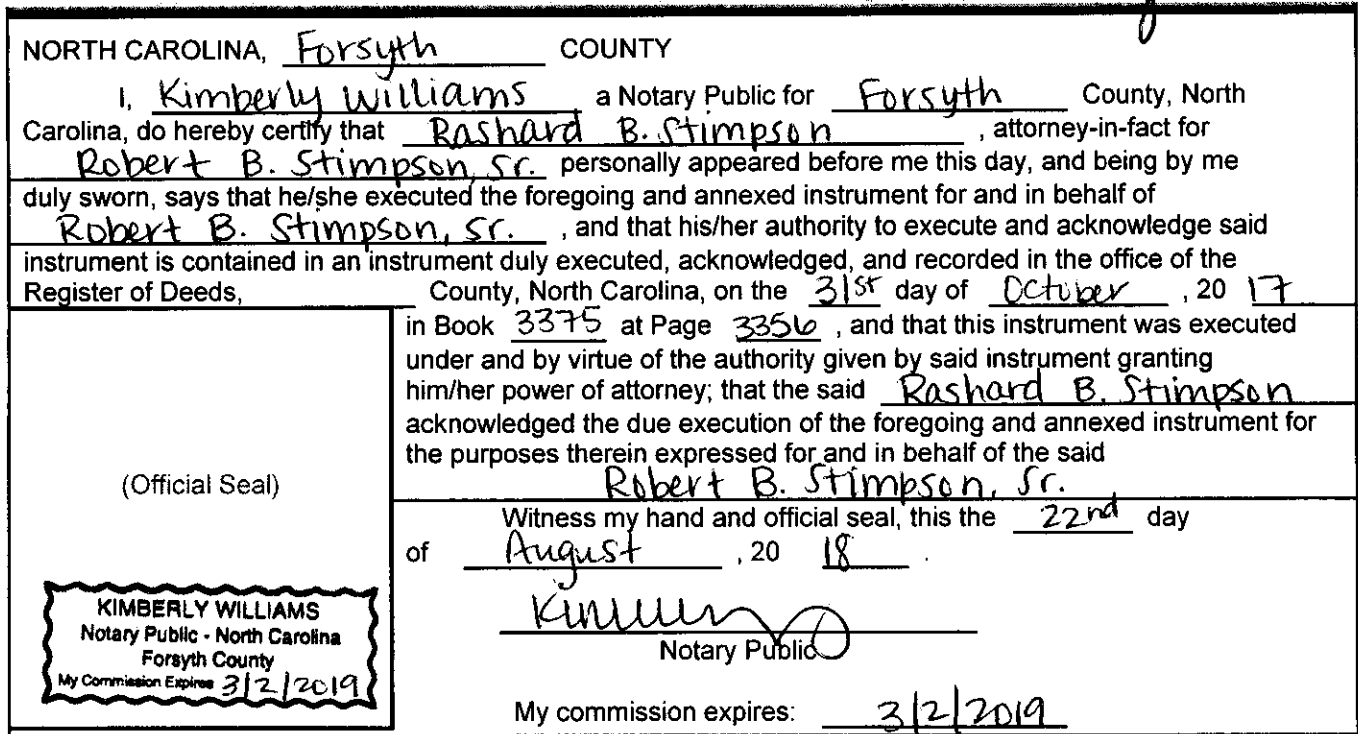 NORTH CAROLINA, Forsyth COUNTY
I, Kimberly Williams a Notary Public for Forsyth County, North
Carolina, do hereby certify that Rashard B. Stimpson , attorney-in-fact for
Robert B. Stimpson, Sr. personally appeared before me this day, and being by me
duly sworn, says that he/she executed the foregoing and annexed instrument for and in behalf of
Robert B. Stimpson, Sr. , and that his/her authority to execute and acknowledge said
instrument is contained in an instrument duly executed, acknowledged, and recorded in the office of the
Register of Deeds, County, North Carolina, on the 31st day of October , 20 17
in Book 3375 at Page 3356 , and that this instrument was executed
under and by virtue of the authority given by said instrument granting
him/her power of attorney; that the said Rashard B. Stimpson
acknowledged the due execution of the foregoing and annexed instrument for
the purposes therein expressed for and in behalf of the said
Robert B. Stimpson, Sr.
Witness my hand and official seal, this the 22nd day
of August , 20 18 .
Notary Public
My commission expires: 3/2/2019
(Official Seal)
KIMBERLY WILLIAMS
Notary Public - North Carolina
Forsyth County
My Commission Expires 3/2/2019